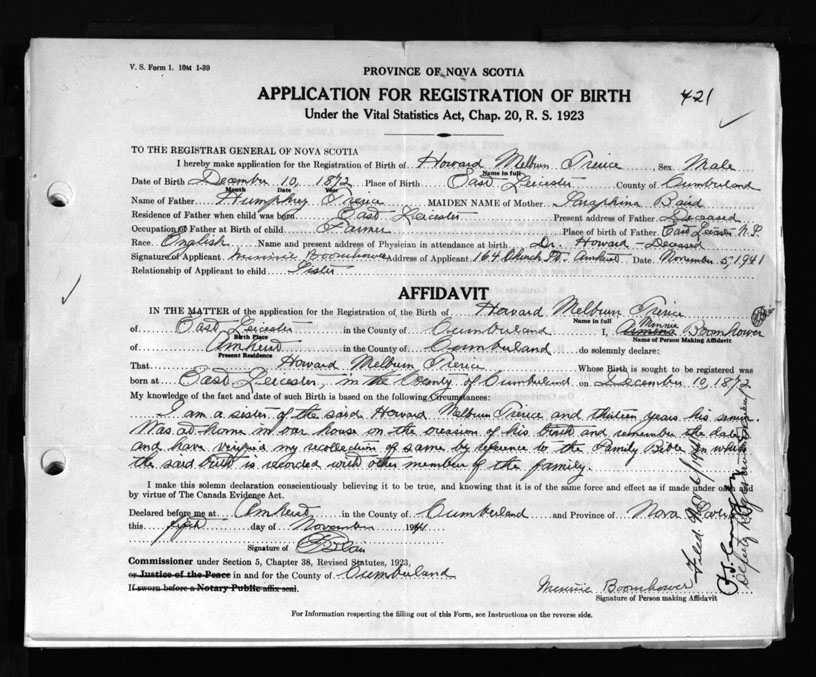 V. S. Form 1. 10M 1-39
PROVINCE OF NOVA SCOTIA
APPLICATION FOR REGISTRATION OF BIRTH 421
Under the Vital Statistics Act, Chap. 20, R. S. 1923
TO THE REGISTRAR GENERAL OF NOVA SCOTIA
I hereby make application for the Registration of Birth of Howard Melburn Treice Sex Male
Name in full
Date of Birth December 10, 1872 Place of Birth East Leicester County of Cumberland
Month Date
Name of Father Humphrey Treice MAIDEN NAME of Mother Saraphina Baird
Residence of Father when child was born East Leicester Present address of Father Deceased
Occupation of Father at Birth of child Farmer Place of birth of Father East Leicester N.S.
Race English Name and present address of Physician in attendance at birth Dr. Howard - Deceased
Signature of Applicant Minnie Boomhower Address of Applicant 164 Church St. Amherst Date November 5, 1941
Relationship of Applicant to child Sister
AFFIDAVIT
IN THE MATTER of the application for the Registration, of the Birth of Howard Melburn Treice
Name in full
of East Leicester in the County of Cumberland I, Minnie Boomhower
Birth Place Name of Person Making Affidavit
of Amherst in the County of Cumberland do solemnly declare:
Present Residence
That Howard Melburn Treice Whose Birth is sought to be registered was
born at East Leicester, in the County of Cumberland on December 10, 1872
My knowledge of the fact and date of such Birth is based on the following Circumstances:
I am a sister of the said Howard Melburn Treice and thirteen years his senior.
Was at home in our house on the occasion of his birth and remember the date
and have verified my recollection of same by reference to the Family Bible in which
the said birth is recorded with other members of the family.
I make this solemn declaration conscientiously believing it to be true, and knowing that it is of the same force and effect as if made under oath and
by virtue of The Canada Evidence Act.
Declared before me at Amherst in the County of Cumberland and Province of Nova Scotia
this fifth day of November 1941
Signature of Blair
Commissioner under Section 5, Chapter 38, Revised Statutes, 1923,
or Justice of the Peace in and for the County of Cumberland
If sworn before a Notary Public affix seal.
Minnie Boomhower
Signature of Person making Affidavit
For Information respecting the filling out of this Form, see Instructions on the reverse side.
Deputy Registrar